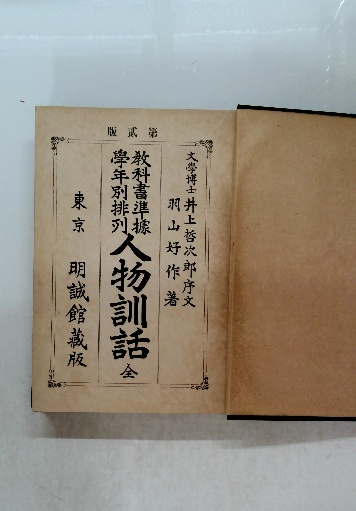 第貳版
文學博士井上哲次郎序文
羽山好作著
教科書準據
學年別排列
人物訓話 全
東京 明誠館藏版